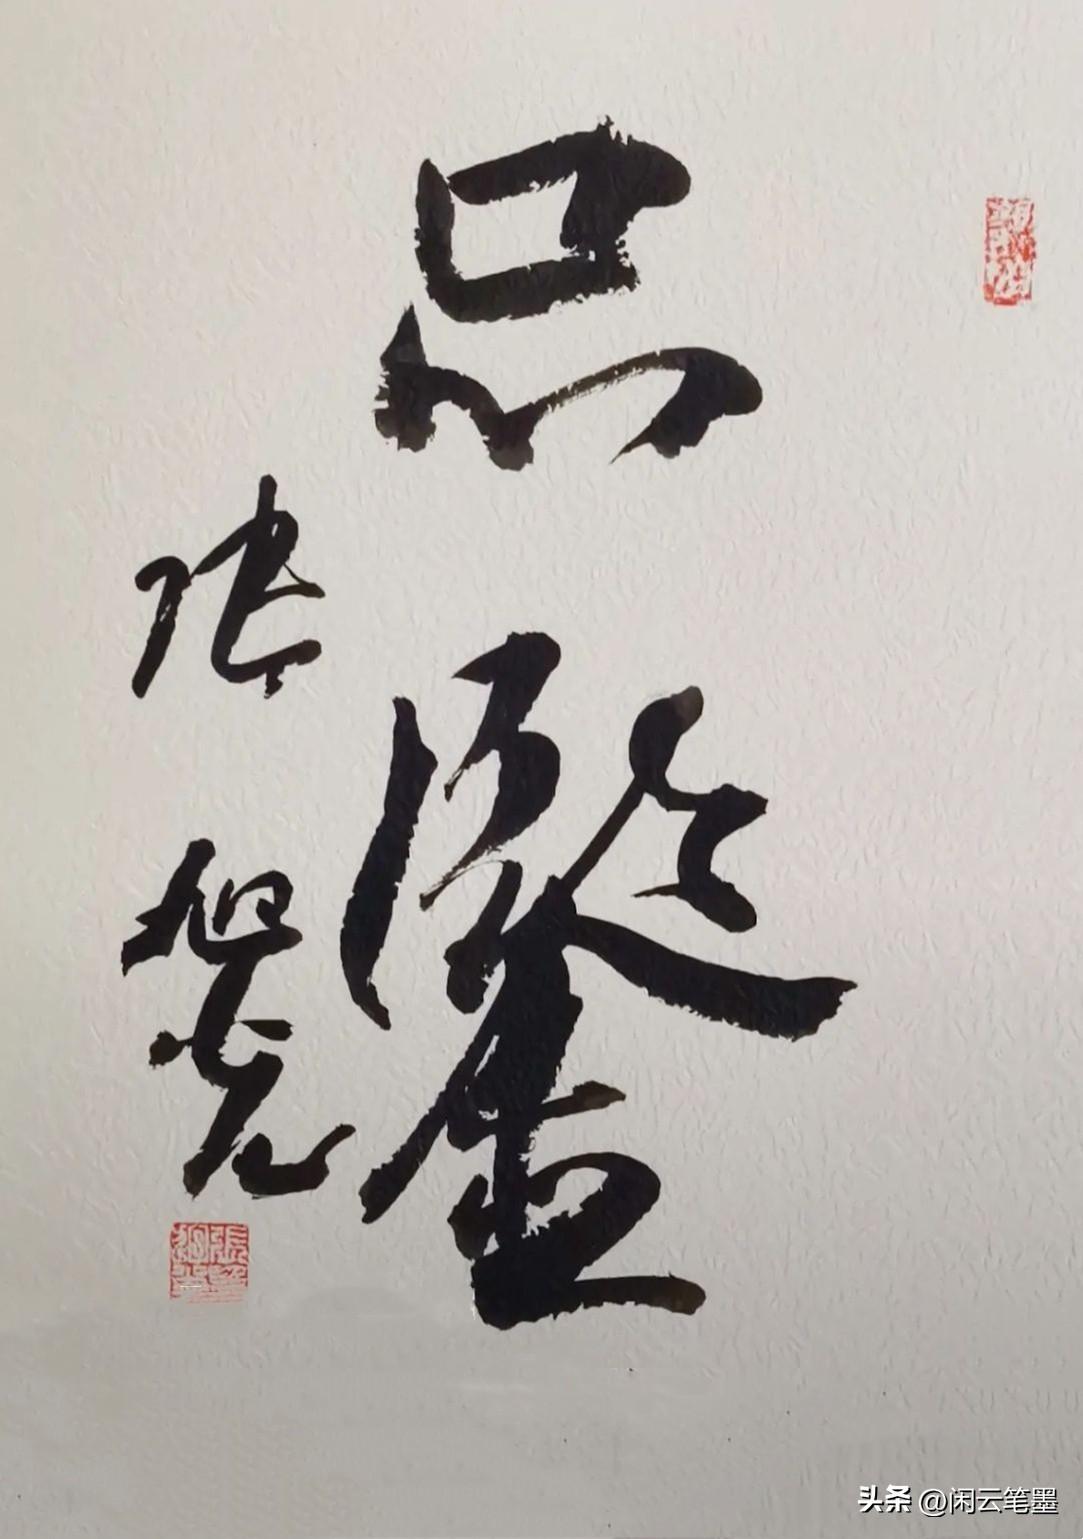 品鉴
张旭光
头条 @闲云笔墨